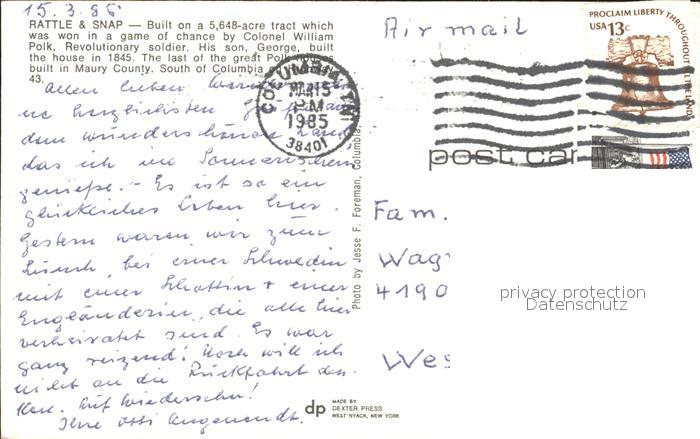 15.3.85
RATTLE & SNAP — Built on a 5,648-acre tract which
was won in a game of chance by Colonel William
Polk, Revolutionary soldier. His son, George, built
the house in 1845. The last of the great Polk houses
built in Maury County. South of Columbia
43.
allen lieben
ne herzlichsten
dem wunderschönen Land
das ich im Sonnenschein
genieße. - Es ist so ein
glückliches Leben hier.
Gestern waren wir zum
Lunch bei einer Schwedin
mit einer Schottin + einer
Engländerin, die alle hier
verheiratet sind. Es war
ganz reizend! Noch will ich
nicht an die Rückfahrt den-
ken. Auf Wiedersehn!
Ihre
Photo by Jesse F. Foreman, Columbia,
COLUMBIA, TN
MAR 15
PM
1985
38401
Air mail
PROCLAIM LIBERTY THROUGHOUT ALL THE LAND
USA 13c
post car
Fam.
Wag
4190
Wes
privacy protection
Datenschutz
dp
MADE BY
DEXTER PRESS
WEST NYACK, NEW YORK